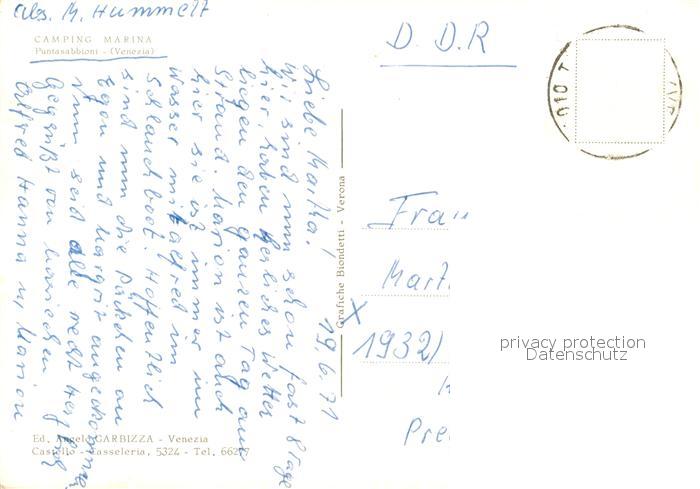 Abs. M. Hummelt
CAMPING MARINA
Puntasabbioni - (Venezia)
D. D. R
Liebe Martha!
Wir sind nun schon fast 8 Tage
hier, haben herliches Wetter
liegen den ganzen Tag am
Strand. Marion ist auch
hier sie ist immer im
Wasser mit Alfred im
Schlauchboot. Hoffentlich
sind nun die Päckchen an
Egon und Margrit angekommen
Nun seid alle recht herzlich
gegrüßt von
Alfred Hanna u. Marion
19.6.71
Grafiche Biondetti - Verona
Frau
Mart
X
1932)
Pre
privacy protection
Datenschutz
Ed. Angelo GARBIZZA - Venezia
Castello - Casseleria, 5324 - Tel.